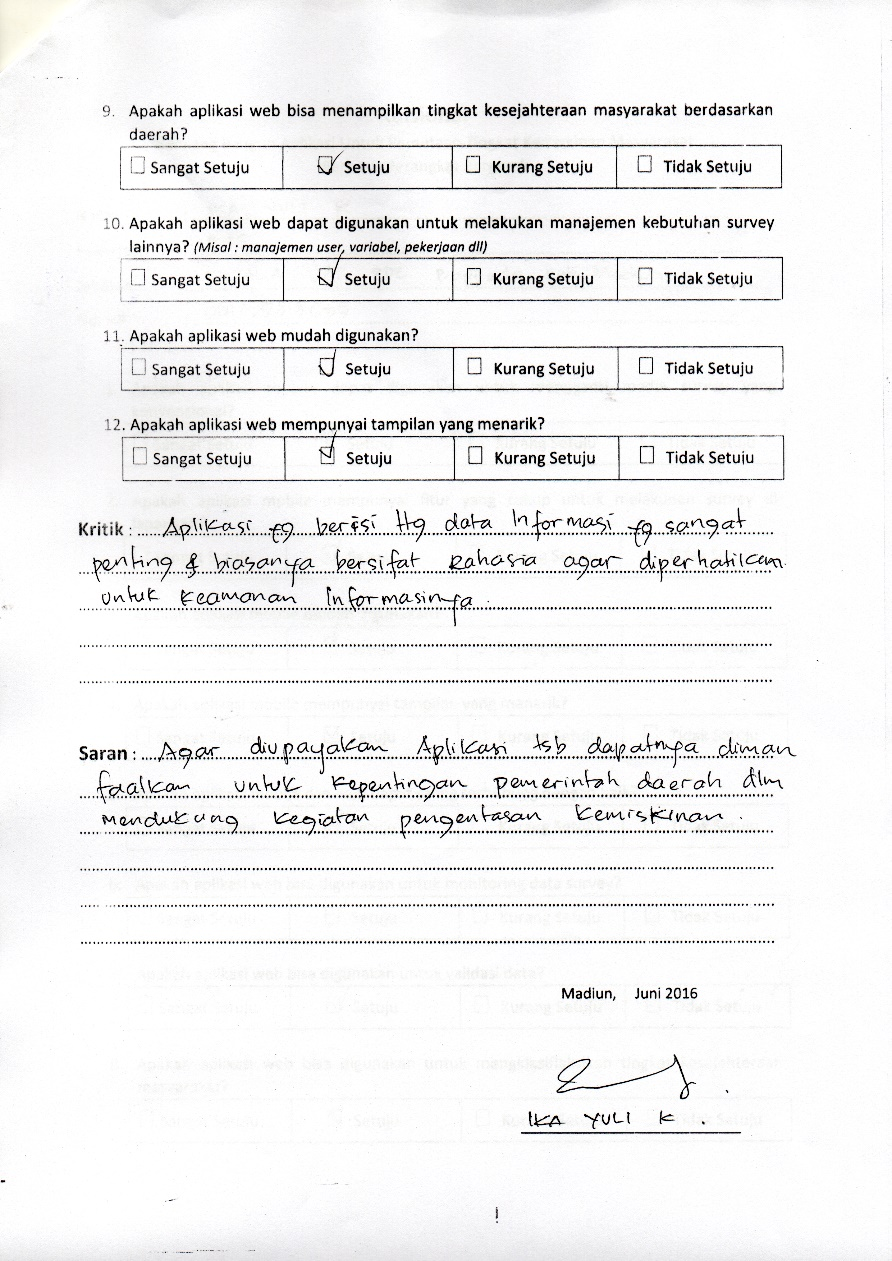 9. Apakah aplikasi web bisa menampilkan tingkat kesejahteraan masyarakat berdasarkan
daerah?
☐ Sangat Setuju ☑ Setuju ☐ Kurang Setuju ☐ Tidak Setuju
10. Apakah aplikasi web dapat digunakan untuk melakukan manajemen kebutuhan survey
lainnya? (Misal : manajemen user, variabel, pekerjaan dll)
☐ Sangat Setuju ☑ Setuju ☐ Kurang Setuju ☐ Tidak Setuju
11. Apakah aplikasi web mudah digunakan?
☐ Sangat Setuju ☑ Setuju ☐ Kurang Setuju ☐ Tidak Setuju
12. Apakah aplikasi web mempunyai tampilan yang menarik?
☐ Sangat Setuju ☑ Setuju ☐ Kurang Setuju ☐ Tidak Setuju
Kritik : Aplikasi yg berisi ttg data Informasi yg sangat
penting & biasanya bersifat Rahasia agar diperhatikan
untuk Keamanan Informasinya.
Saran : Agar diupayakan Aplikasi tsb dapatnya diman
faatkan untuk Kepentingan pemerintah daerah dlm
mendukung kegiatan pengentasan Kemiskinan.
Madiun, Juni 2016
IKA YULI K.